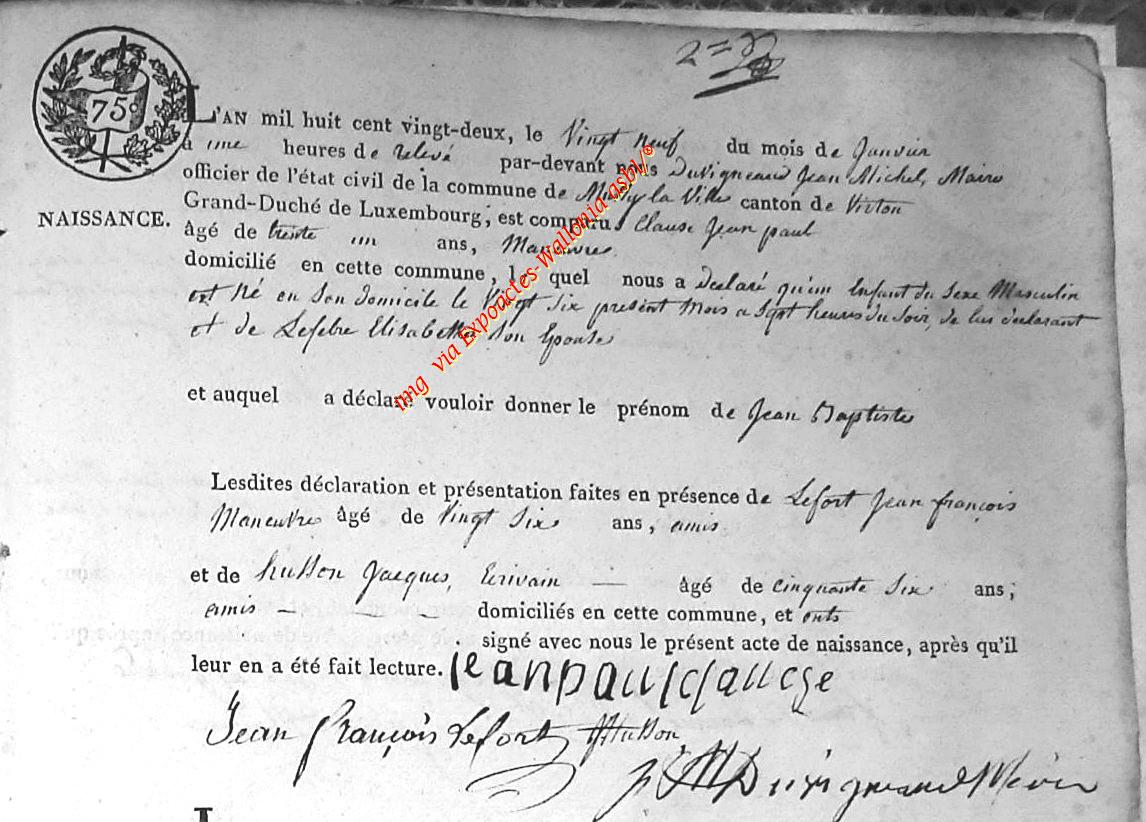 2=
75c
L'AN mil huit cent vingt-deux, le Vingt neuf du mois de Janvier
à une heures de relevé par-devant nous Duvigneaud Jean Michel, Maire
officier de l'état civil de la commune de Mussy la Ville canton de Virton
NAISSANCE.
Grand-Duché de Luxembourg, est comparu Clause Jean paul
âgé de trente un ans, Maneuvre
domicilié en cette commune, le quel nous a declaré qu'un Enfant du Sexe Masculin
est Né en Son domicile le Vingt Six présent Mois a Sept heures du Soir, de lui declarant
et de Lefebre Elisabeth Son Epouse
et auquel a déclaré vouloir donner le prénom de Jean Baptiste
Lesdites déclaration et présentation faites en présence de Lefort Jean françois
Maneuvre âgé de Vingt Six ans, amis
et de husson Jacques, Ecrivain — âgé de cinquante Six ans;
amis - - - domiciliés en cette commune, et onts
signé avec nous le présent acte de naissance, après qu'il
leur en a été fait lecture. jeanpaulclauese
Jean françois Lefort JHusson
JMDuvigneaud Maire
img via Expoactes-Wallonia-asbl/©
L